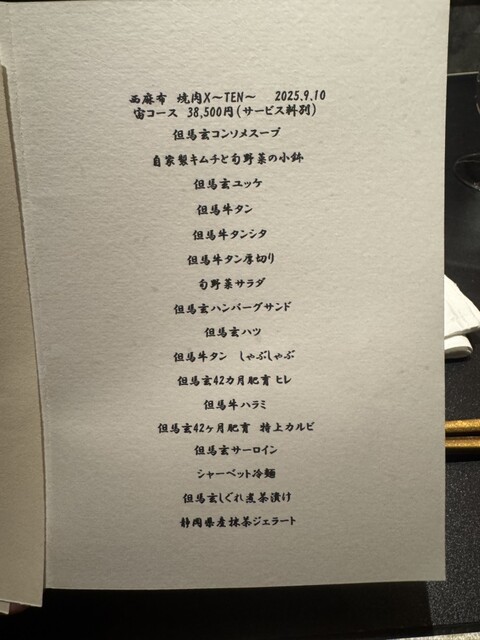 西麻布 焼肉X～TEN～ 2025.9.10
宙コース 38,500円(サービス料別)
但馬玄コンソメスープ
自家製キムチと旬野菜の小鉢
但馬玄ユッケ
但馬牛タン
但馬牛タンシタ
但馬牛タン厚切り
旬野菜サラダ
但馬玄ハンバーグサンド
但馬玄ハツ
但馬牛タン しゃぶしゃぶ
但馬玄42カ月肥育 ヒレ
但馬牛ハラミ
但馬玄42ヶ月肥育 特上カルビ
但馬玄サーロイン
シャーベット冷麺
但馬玄しぐれ煮茶漬け
静岡県産抹茶ジェラート